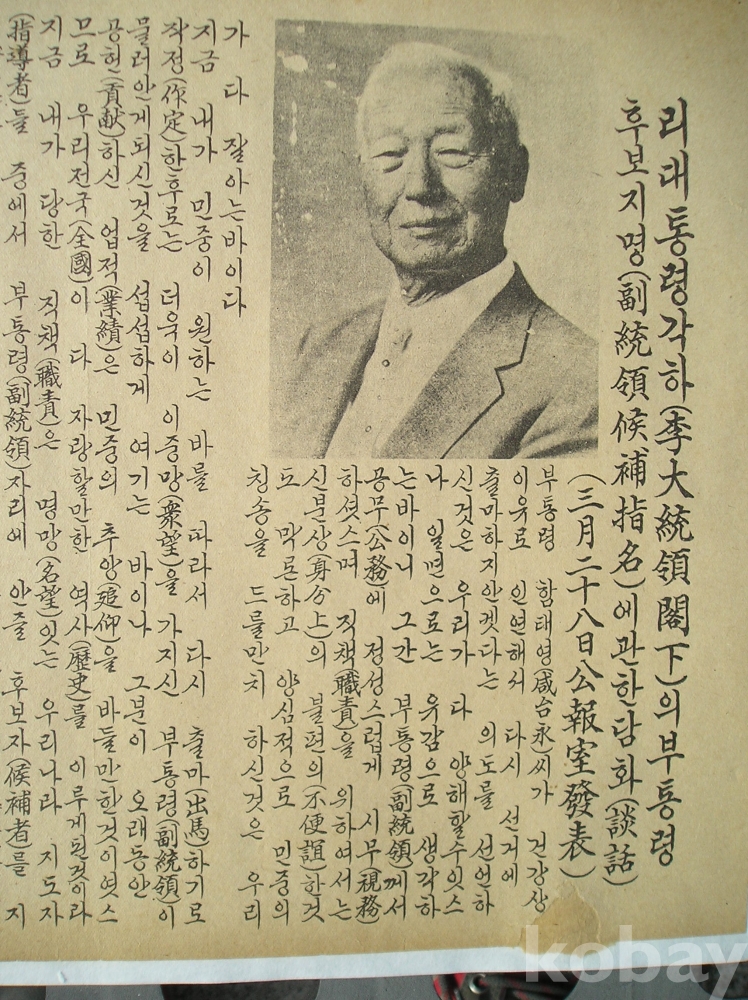 리대통령각하(李大統領閣下)의부통령
후보지명(副統領候補指名)에관한담화(談話)
(三月二十八日公報室發表)
부통령 함태영(咸台永)씨가 건강상
이유로 인연해서 다시 선거에
출마하지안켓다는 의도를 선언하
신것은 우리가 다 양해할수잇스
나 일면으로는 유감으로 생각하
는바이니 그간 부통령(副統領)께서
공무(公務)에 정성스럽게 시무(視務)
하셧스며 직책(職責)을 위하여서는
신분상(身分上)의 불편의(不便誼)한것
도 막론하고 양심적으로 민중의
칭송을 드를만치 하신것은 우리
가 다 잘아는바이다
지금 내가 민중이 원하는 바를 따라서 다시 출마(出馬)하기로
작정(作定)한후로는 더욱이 이중망(衆望)을 가지신 부통령(副統領)이
물러안게되신것을 섭섭하게 여기는 바이나 그분이 오래동안
공헌(貢献)하신 업적(業績)은 민중의 추앙(追仰)을 바들만한것이엿스
므로 우리전국(全國)이 다 자랑할만한 역사(歷史)를 이루게된것이라
지금 내가 당한 직책(職責)은 명망(名望)잇는 우리나라 지도자
(指導者)들 중에서 부통령(副統領)자리에 안즐 후보자(候補者)를 지
kobay